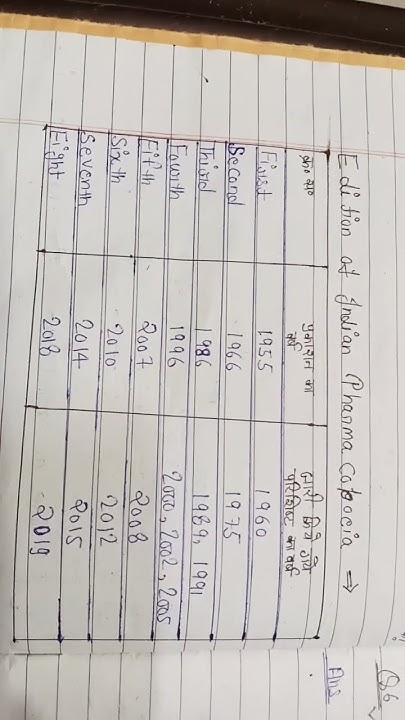 Q6
Ans
Edition of Indian Pharmacopocia ⇒
क्र० सं० प्रकाशन का वर्ष जारी किये गये परिशिष्ट का वर्ष
First 1955 1960
Second 1966 1975
Third 1986 1989, 1991
Fourth 1996 2000, 2002, 2005
Fifth 2007 2008
Sixth 2010 2012
Seventh 2014 2015
Eight 2018 2019